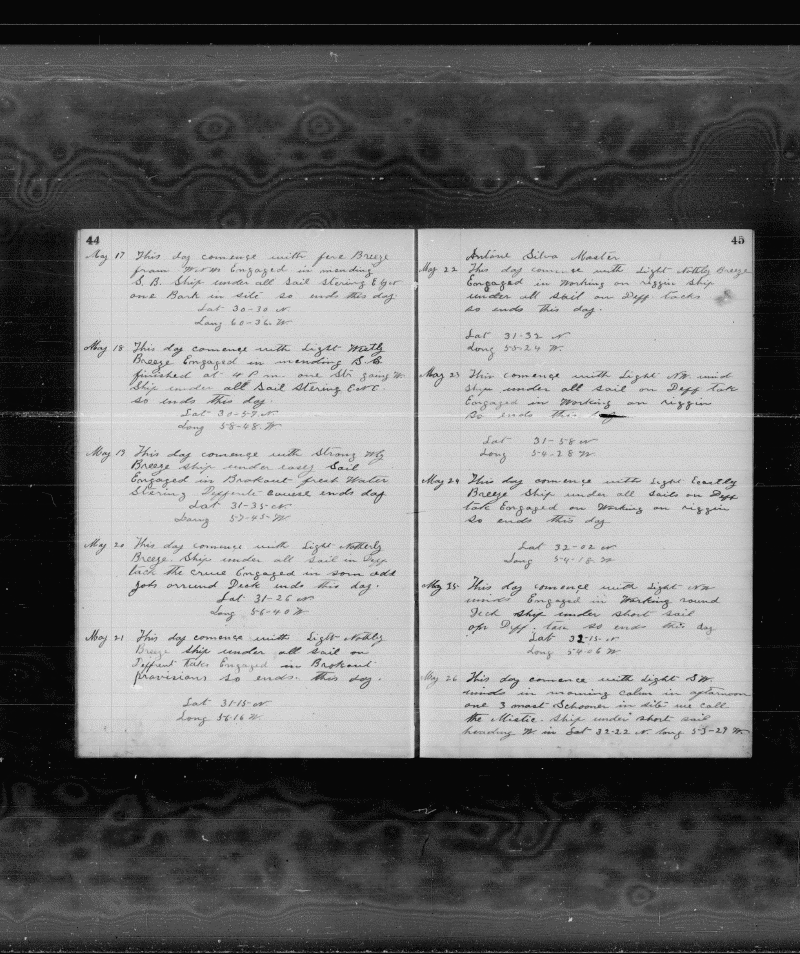 44
May 17 This day comence with fere Breeze
from W.N.W. Engaged in mending
S. B. Ship under all Sail Stering E by N
one Bark in site so ends this day
Lat 30-30 N.
Long 60-36. W.
May 18 This day comence with Light Westly
Breeze Engaged in mending S. B.
finished at 4 P.m. one Str. going W.
Ship under all Sail Stering
so ends this day.
Lat 30-57 N
Long 58-48. W.
May 19 This day comence with Strong Wly
Breeze ship under easey Sail
Engaged in Brokout fresh Water
Stering Defferente Course ends day
Lat 31-35 N
Laung 57-45-W
May 20 This day comence with Light Notherly
Breeze. Ship under all Sail in Deff
tack the crue Engaged in som odd
jobs arround Deck ends this day.
Lat 31-26 N
Long 56-40 W
May 21 This day comence with Light Nothly
Breeze Ship under all sail on
Deffrent taks Engaged in Brokout
provisions so ends this day.
Lat 31-15 N
Long 56-16 W.
45
Antone Silva Master
May 22 This day comence with Light Nothly Breeze
Eengaged in Working on riggin ship
under all Sail on Deff. tacks
so ends this day.
Lat 31-32 N
Long 55-24 W.
May 23 This comence with Light NW. wind
Ship under all sail on Deff tak
Eengaged in Working on riggin
so ends this
Lat 31-58 N
Long 54-28 W
May 24 This day comence with Light Eeastly
Breeze Ship under all Sails on Deff
tak Eengaged on Working on riggin
so ends this day
Lat 32-02 N
Long 54-18 W
May 25 This day comence with Light NW
winds Engaged in Working round
Deck ship under short sail
on Deff. tax so ends this day
Lat 32-15 N
Long 54 06 W
May 26 This day comence with Light S.W.
winds in morning calm in afternoon
one 3 mast Schooner in site we call
the Mistic. Ship under short sail
heading W in Lat 32-22 N. long 53-29 W.